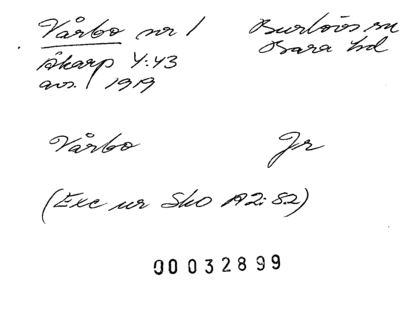 Vårbo nr 1 Burlövs sn
Åkarp 4:43 Bara hd
avs. 1919
Vårbo Jr
(Exc ur Sko A2:82)
00032899